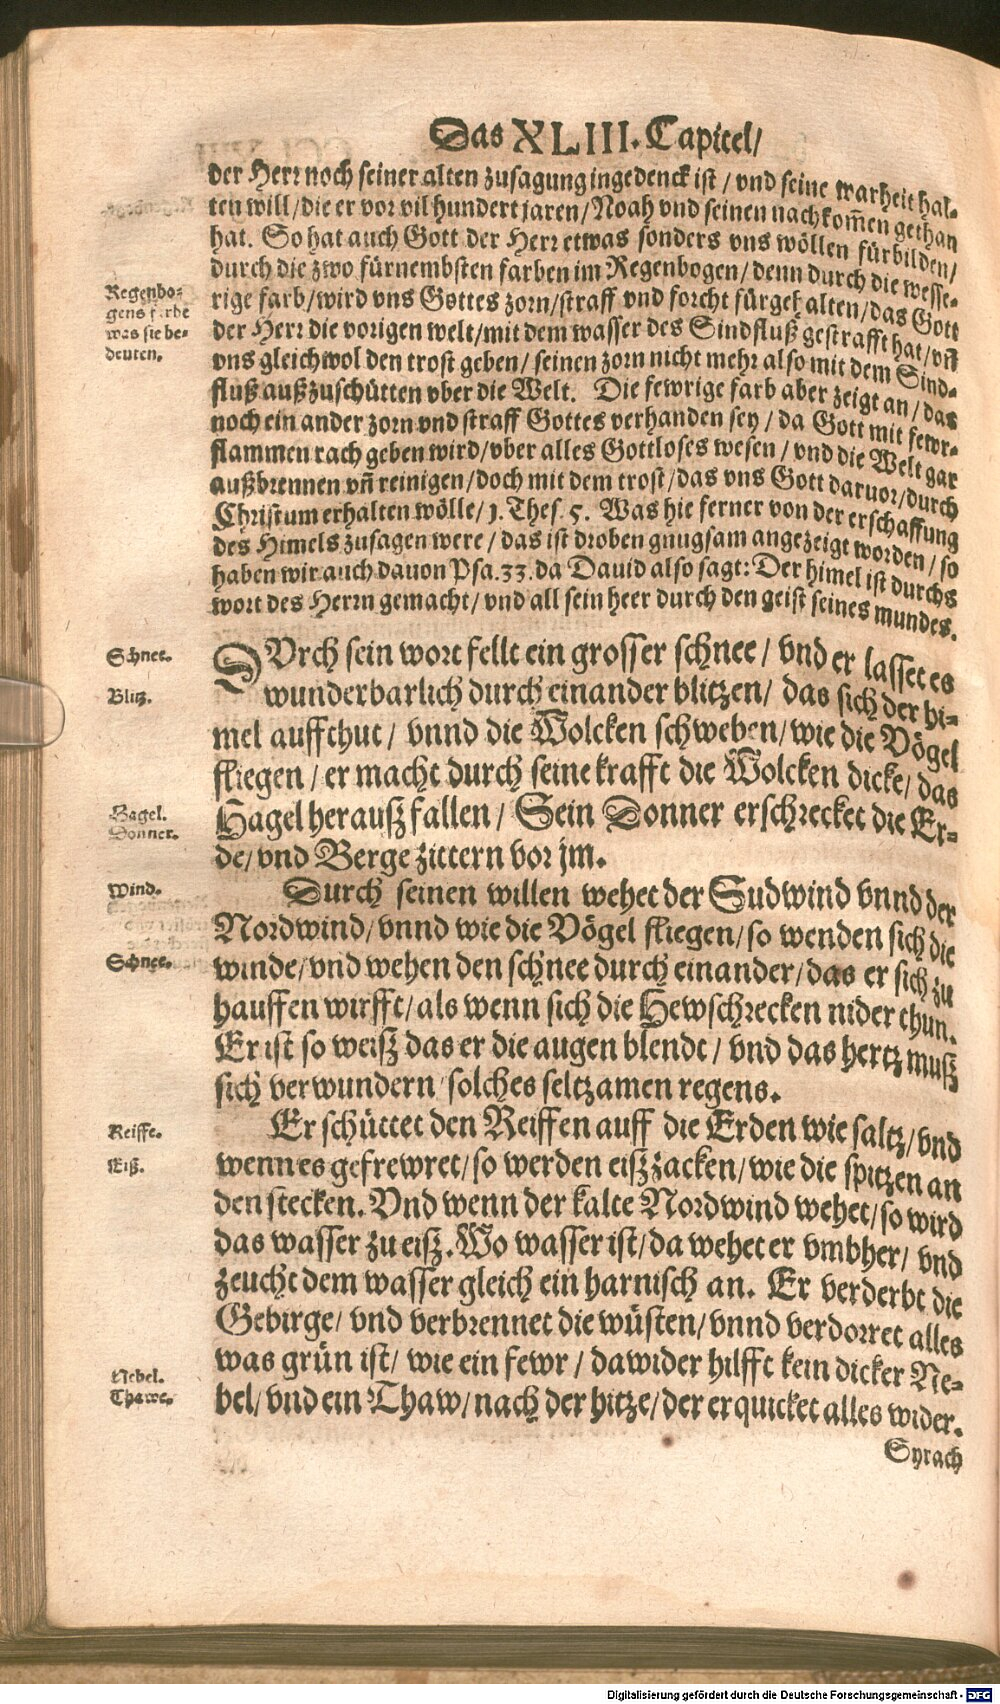 Das XLIII. Capitel/
der Herr noch seiner alten zusagung ingedenck ist / vnd seine warheit hal-
ten will / die er vor vil hundert jaren / Noah vnd seinen nachkom̃en gethan
hat. So hat auch Gott der Herr etwas sonders vns wöllen fürbilden /
durch die zwo fürnembsten farben im Regenbogen / denn durch die wesse-
Regenbo-
gens farbe
was sie be-
deuten.
rige farb / wird vns Gottes zorn / straff vnd forcht fürgehalten / das Gott
der Herr die vorigen welt / mit dem wasser des Sindfluß gestrafft hat / vñ
vns gleichwol den trost geben / seinen zorn nicht mehr also mit dem Sind-
fluß außzuschütten vber die Welt. Die fewrige farb aber zeigt an / das
noch ein ander zorn vnd straff Gottes verhanden sey / da Gott mit fewr-
flammen rach geben wird / vber alles Gottloses wesen / vnd die Welt gar
außbrennen vñ reinigen / doch mit dem trost / das vns Gott daruor / durch
Christum erhalten wölle / 1. Thes. 5. Was hie ferner von der erschaffung
des Himels zusagen were / das ist droben gnugsam angezeigt worden / so
haben wir auch dauon Psa. 33. da Dauid also sagt: Der himel ist durchs
wort des Herrn gemacht / vnd all sein heer durch den geist seines mundes.
Schnee.
DVrch sein wort fellt ein grosser schnee / vnd er lasset es
Blitz.
wunderbarlich durch einander blitzen / das sich der hi-
mel auffthut / vnnd die Wolcken schweben / wie die Vögel
fliegen / er macht durch seine krafft die Wolcken dicke / das
Hagel.
Donner.
Hagel herauß fallen / Sein Donner erschrecket die Er-
de / vnd Berge zittern vor jm.
Wind.
Durch seinen willen wehet der Sudwind vnnd der
Nordwind / vnnd wie die Vögel fliegen / so wenden sich die
Schnee.
winde / vnd wehen den schnee durch einander / das er sich zu
hauffen wirfft / als wenn sich die Hewschrecken nider thun.
Er ist so weiß das er die augen blendt / vnd das hertz muß
sich verwundern solches seltzamen regens.
Reiffe.
Er schüttet den Reiffen auff die Erden wie saltz / vnd
Eiß.
wenn es gefrewret / so werden eißzacken / wie die spitzen an
den stecken. Vnd wenn der kalte Nordwind wehet / so wird
das wasser zu eiß. Wo wasser ist / da wehet er vmbher / vnd
zeucht dem wasser gleich ein harnisch an. Er verderbt die
Gebirge / vnd verbrennet die wüsten / vnnd verdorret alles
was grün ist / wie ein fewr / dawider hilfft kein dicker Ne-
Nebel.
Thawe.
bel / vnd ein Thaw / nach der hitze / der erquicket alles wider.
Syrach
Digitalisierung gefördert durch die Deutsche Forschungsgemeinschaft - DFG